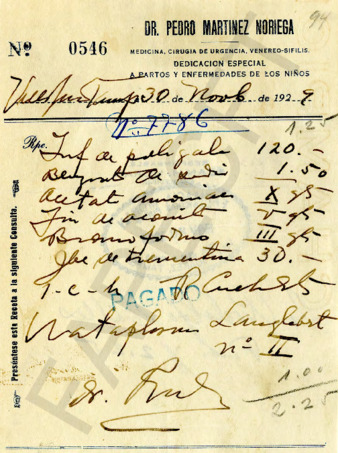 94
DR. PEDRO MARTINEZ NORIEGA
Nº 0546
MEDICINA, CIRUGIA DE URGENCIA, VENEREO-SIFILIS.
DEDICACION ESPECIAL
A PARTOS Y ENFERMEDADES DE LOS NIÑOS
30 de Novb. de 1929
Nº 7786
1.25
Rpe. Inf de poligala 120.-
Benzoato de sodio 1.50
Acetat amoniac X gts
Tin de aconito V gts
Bromoformo III gts
Jbe de trementina 30.-
PAGADO
Cataplasma Langlebert
nº II
1.00
2.25
Dr.
Preséntese esta Receta a la siguiente Consulta.